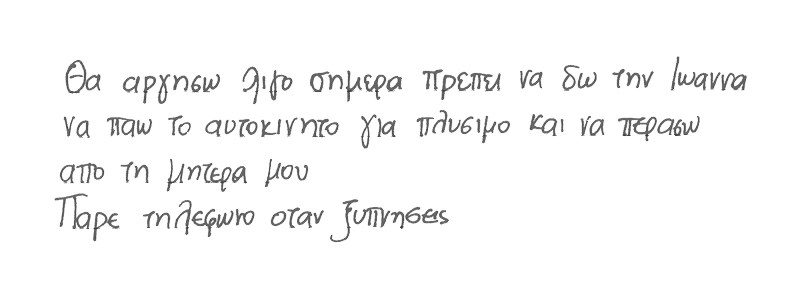 Θα αργησω λιγο σημερα πρεπει να δω την Ιωαννα
να παω το αυτοκινητο για πλυσιμο και να περασω
απο τη μητερα μου
Παρε τηλεφωνο οταν ξυπνησεις